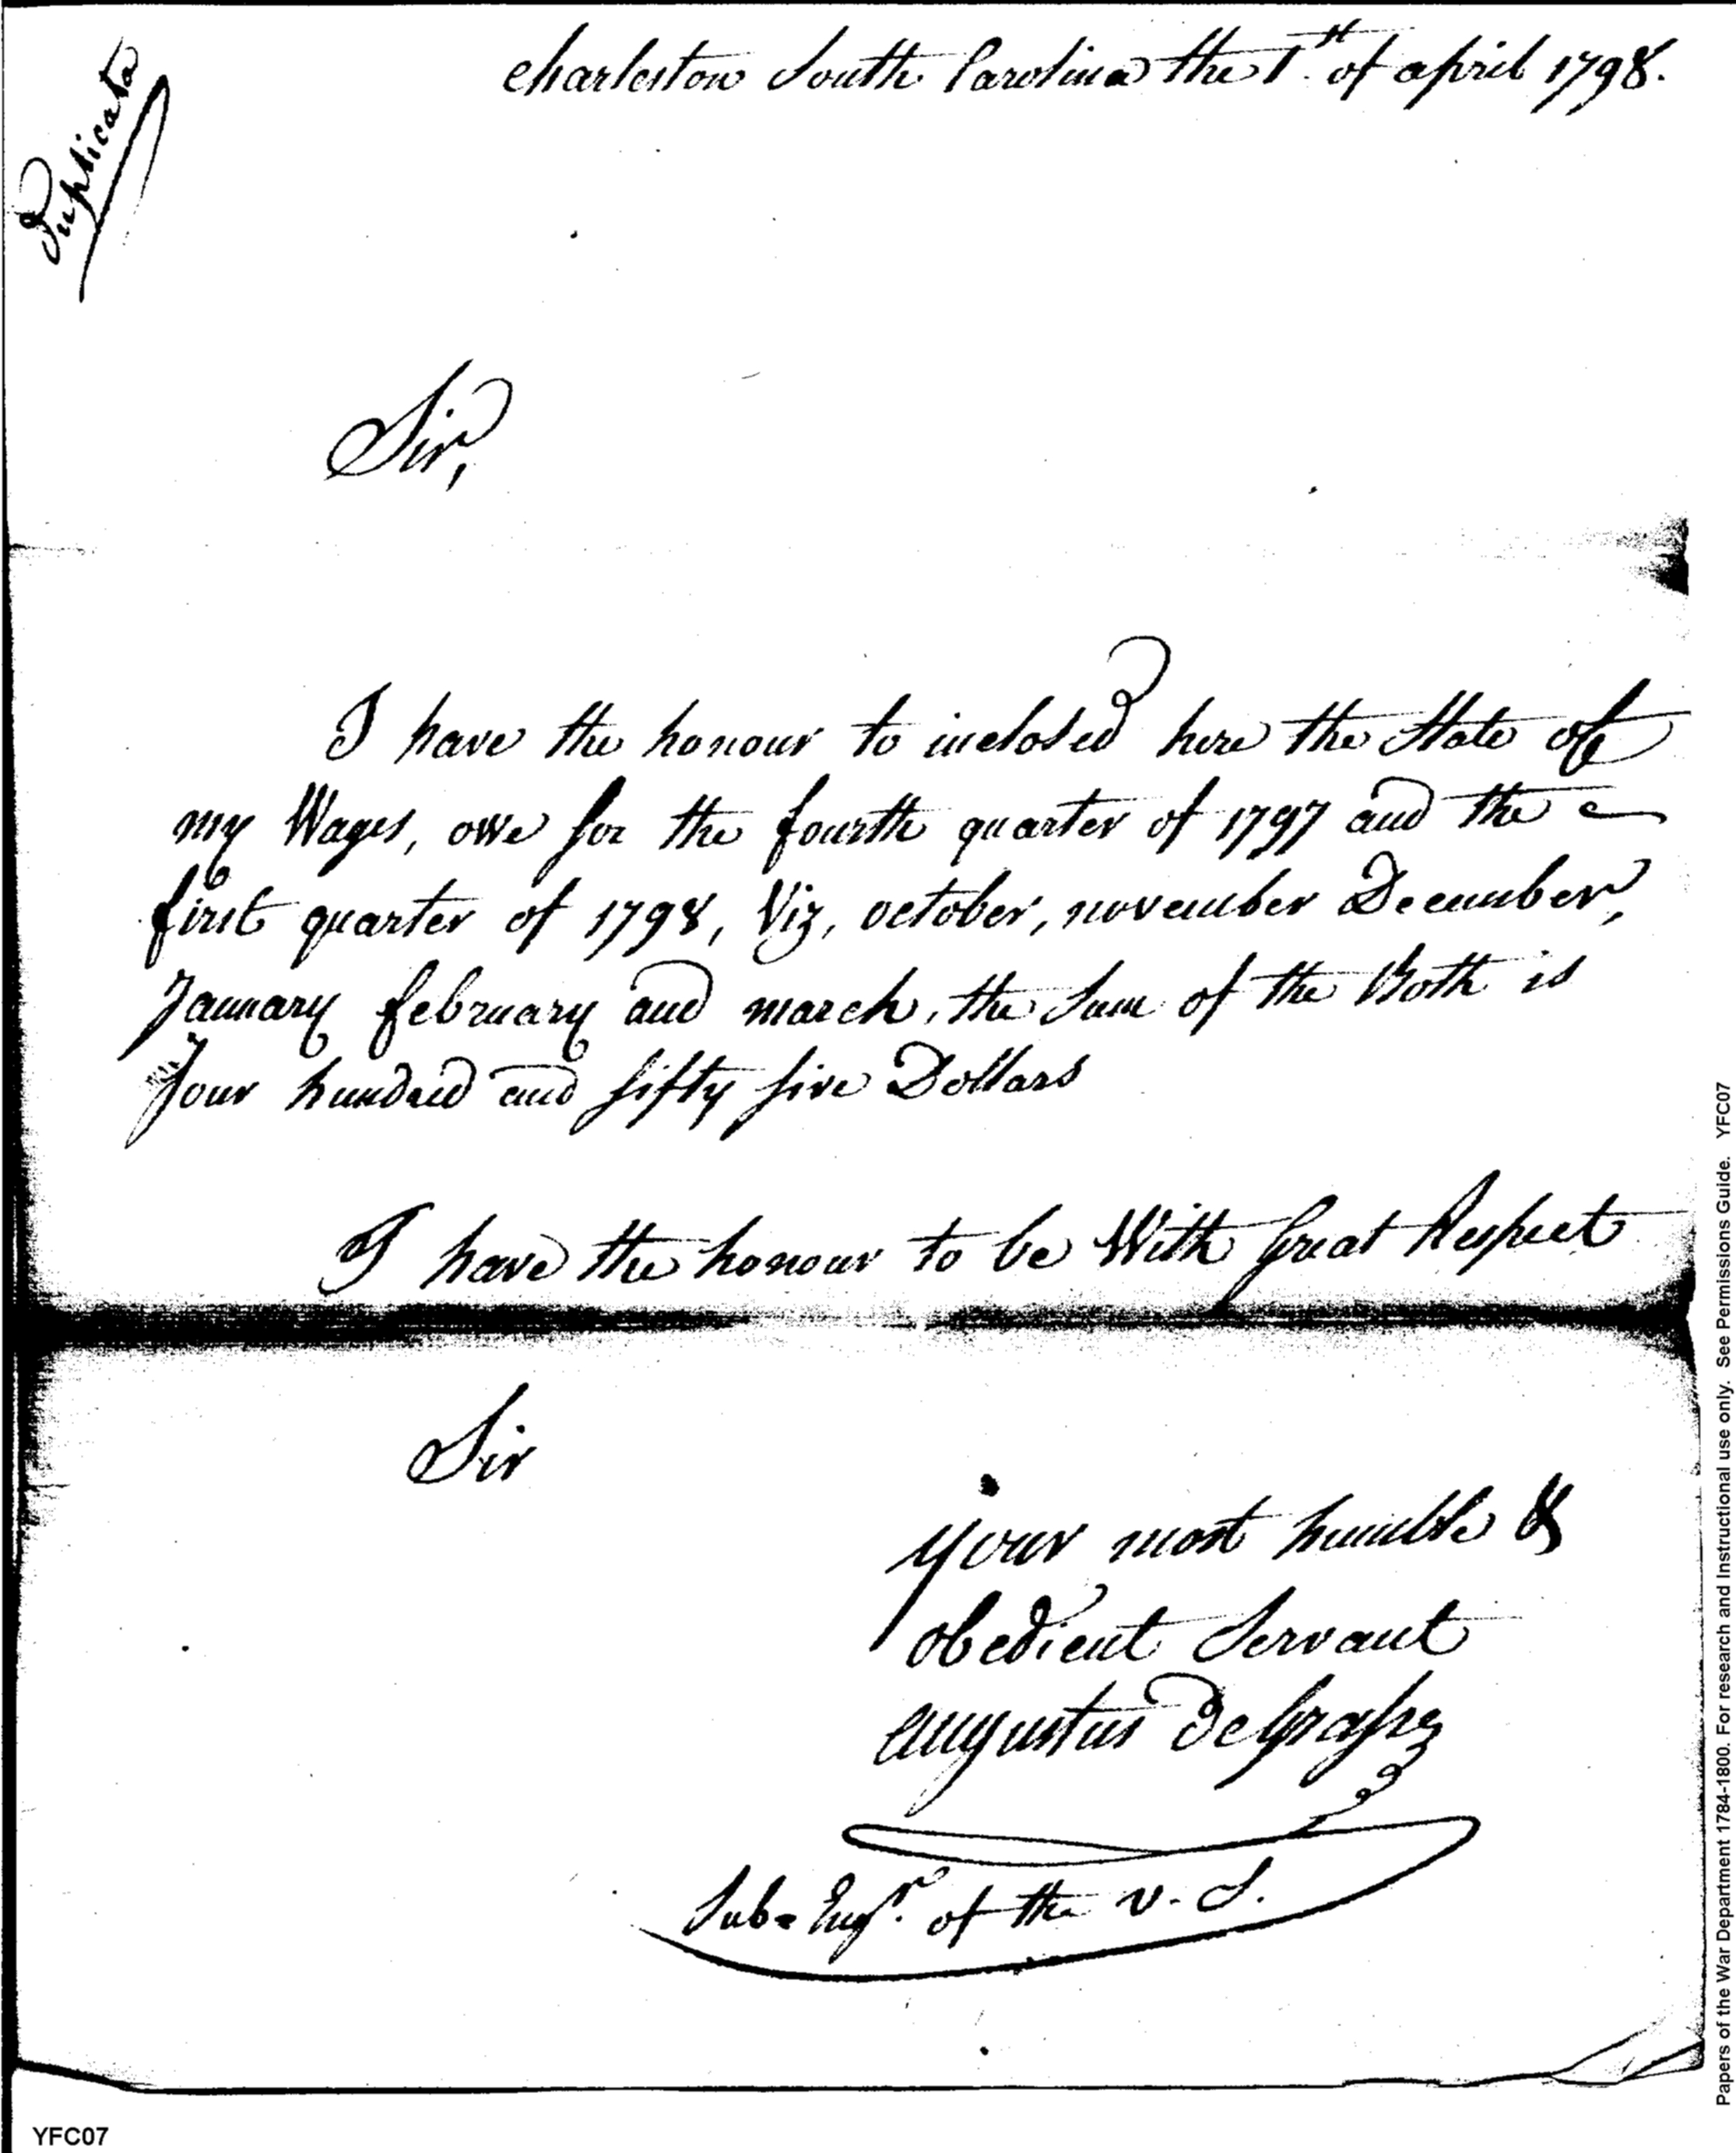 Duplicata
charleston South Carolina the 1st of april 1798.
Sir,
I have the honour to inclosed here the State of
my Wages, owe for the fourth quarter of 1797 and the
first quarter of 1798, Viz, october, november December,
January february and march, the Sum of the Both is
four hundred and fifty five Dollars
I have the honour to be With Great Respect
Sir
your most humble &
obedient Servant
augustus DeGrasse
Sub=Engr. of the U. S.
Papers of the War Department 1784-1800. For research and Instructional use only. See Permissions Guide. YFC07
YFC07